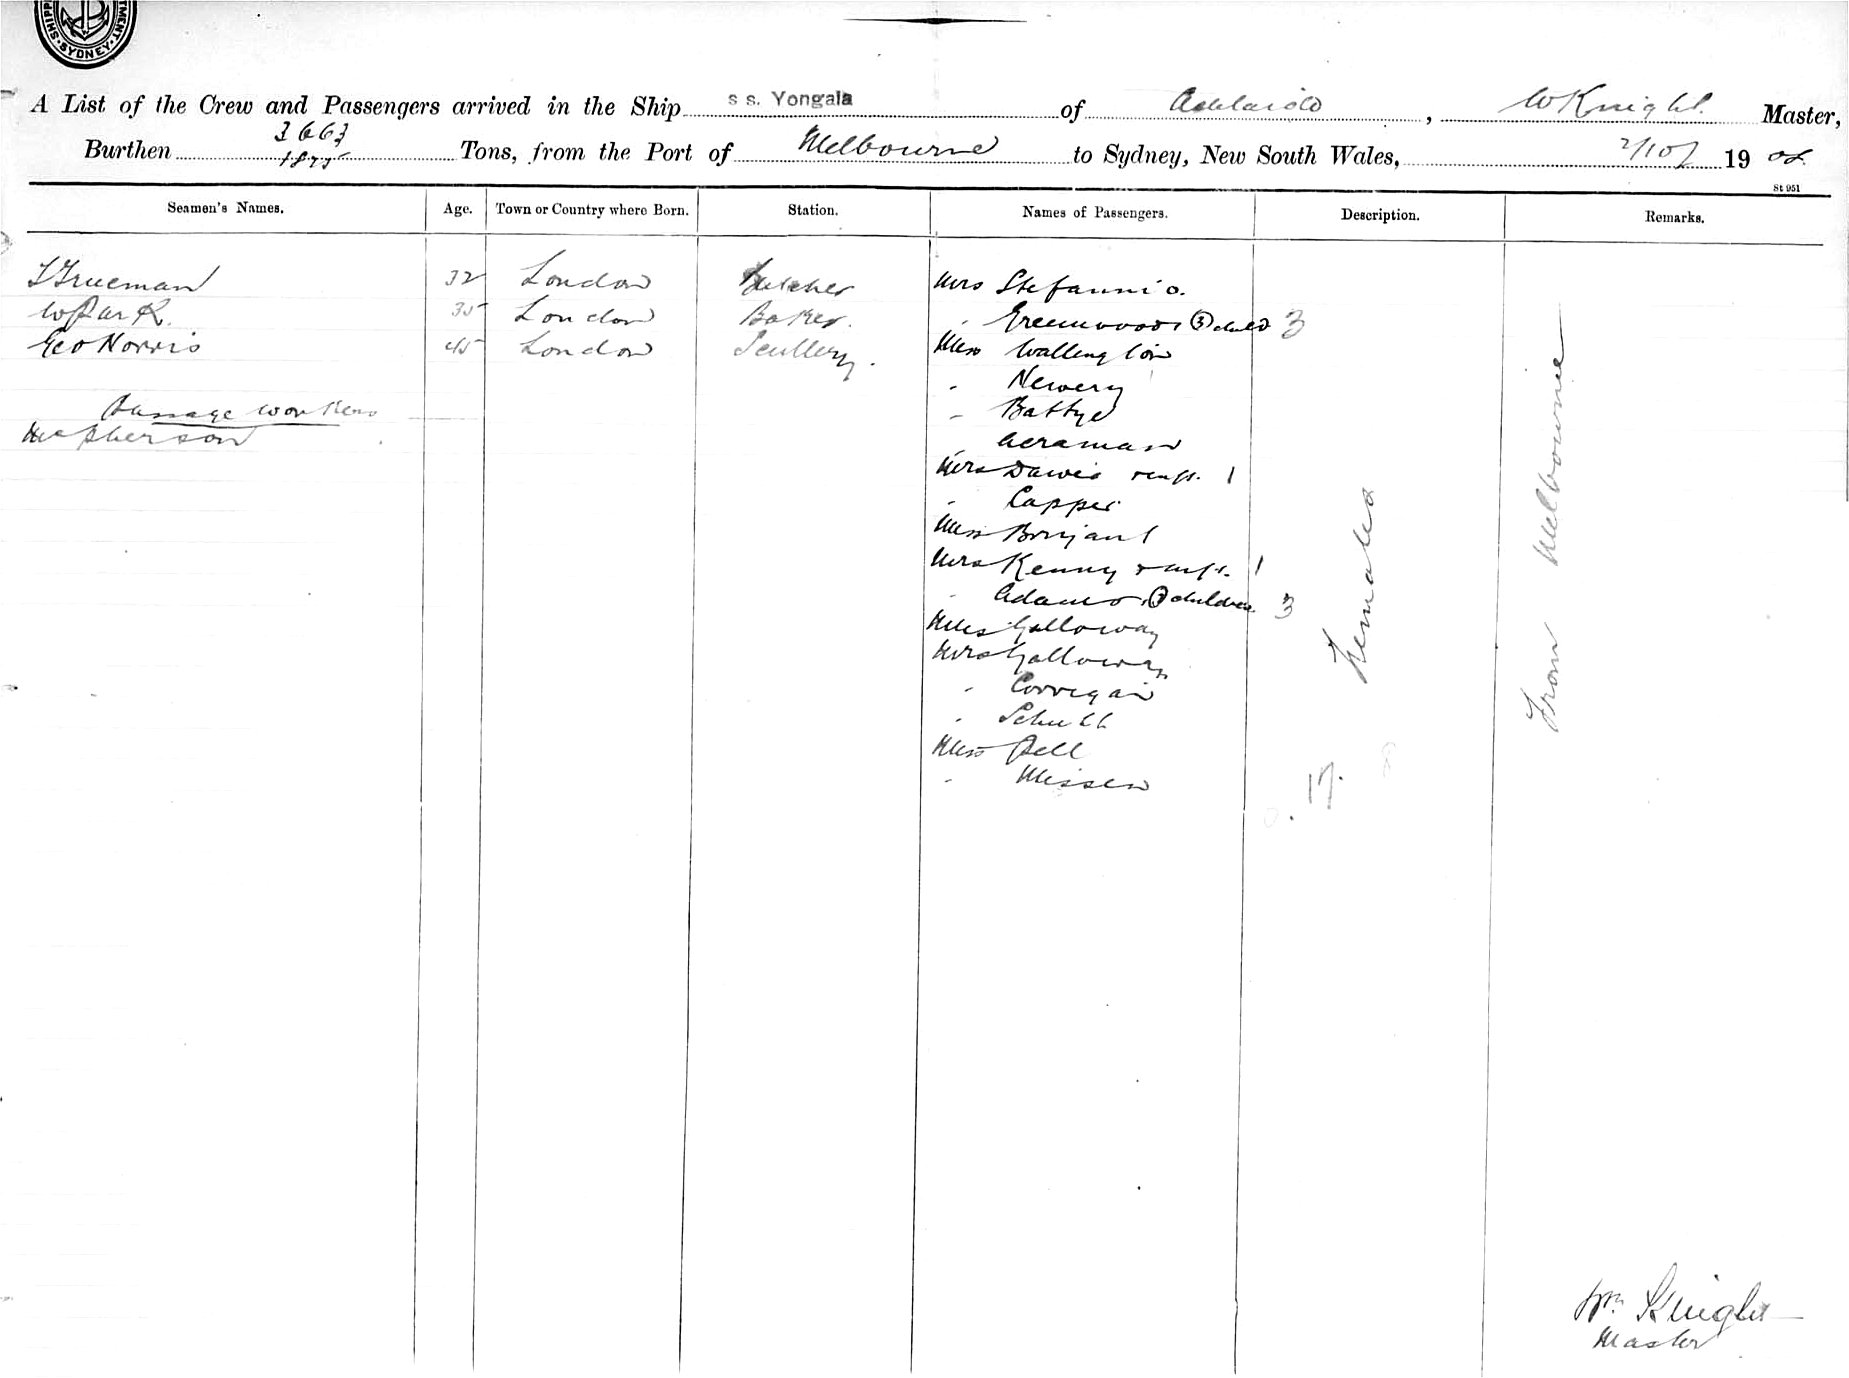 SHIPP
MENT.
SYDNEY
A List of the Crew and Passengers arrived in the Ship s s. Yongala of Adelaide, W Knight. Master,
Burthen 3663 1825 Tons, from the Port of Melbourne to Sydney, New South Wales, 2/10/ 19 08.
St 951
Seamen's Names. Age. Town or Country where Born. Station. Names of Passengers. Description. Remarks.
T Trueman 32 London Butcher Mrs Stefannio.
W Park. 35 London Baker. " Greenwood & 3 child 3
Geo Norris 45 London Scullery. Miss Wallington
" Newery
Passage workers " Battye
McPherson " Acraman
Mrs Davis & inft. 1
" Capper
Miss Bonjant
Mrs Kenny & inft. 1
" Adams, 3 children 3
Miss Galloway
Mrs Galloway
" Corrigan
" Schutt
Miss Pell
" Missen
17.
Females
From Melbourne
Wm. Knight
Master